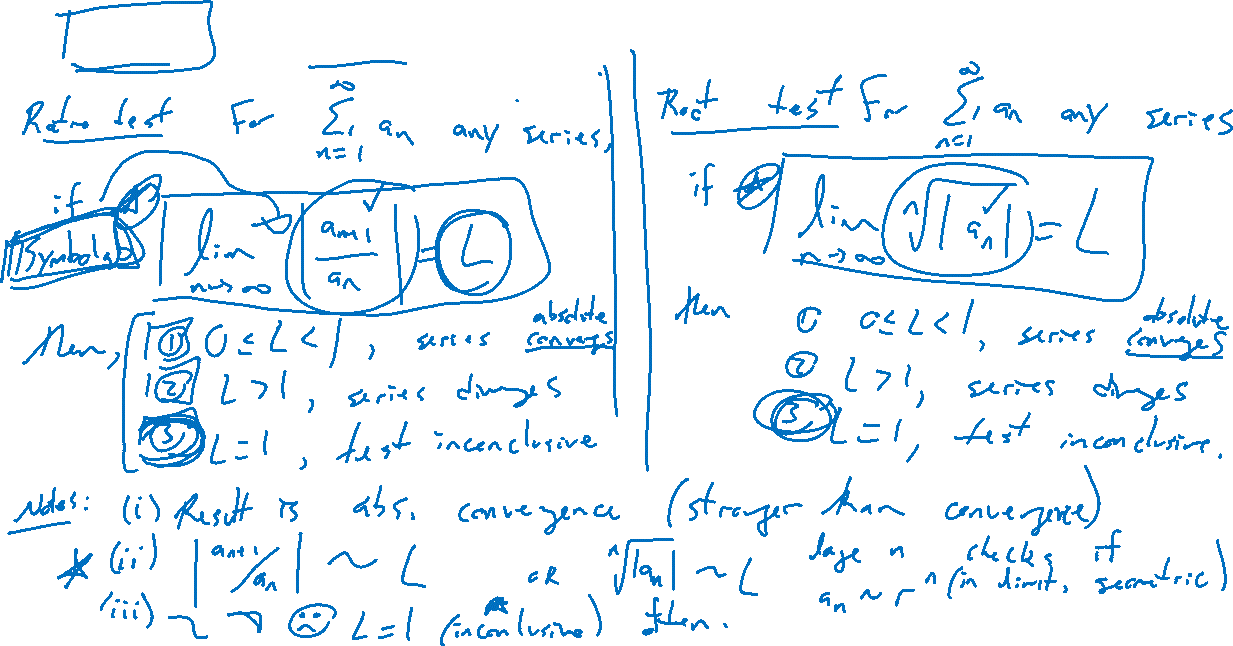 Ratio test For ∑_{n=1}^{∞} a_n any series,
if ★ lim_{n→∞} |a_{n+1}/a_n| = L
Symbolab
then, ① 0 ≤ L < 1, series absolute converges
② L > 1, series diverges
③ L = 1, test inconclusive
Root test For ∑_{n=1}^{∞} a_n any series
if ★ lim_{n→∞} ⁿ√|a_n| = L
then ① 0 ≤ L < 1, series absolute converges
② L > 1, series diverges
③ L = 1, test inconclusive.
Notes: (i) Result is abs. convergence (stronger than convergence)
★ (ii) |a_{n+1}/a_n| ~ L OR ⁿ√|a_n| ~ L large n checks if a_n ~ r^n (in limit, geometric)
(iii) ☹ L = 1 (inconclusive) often.